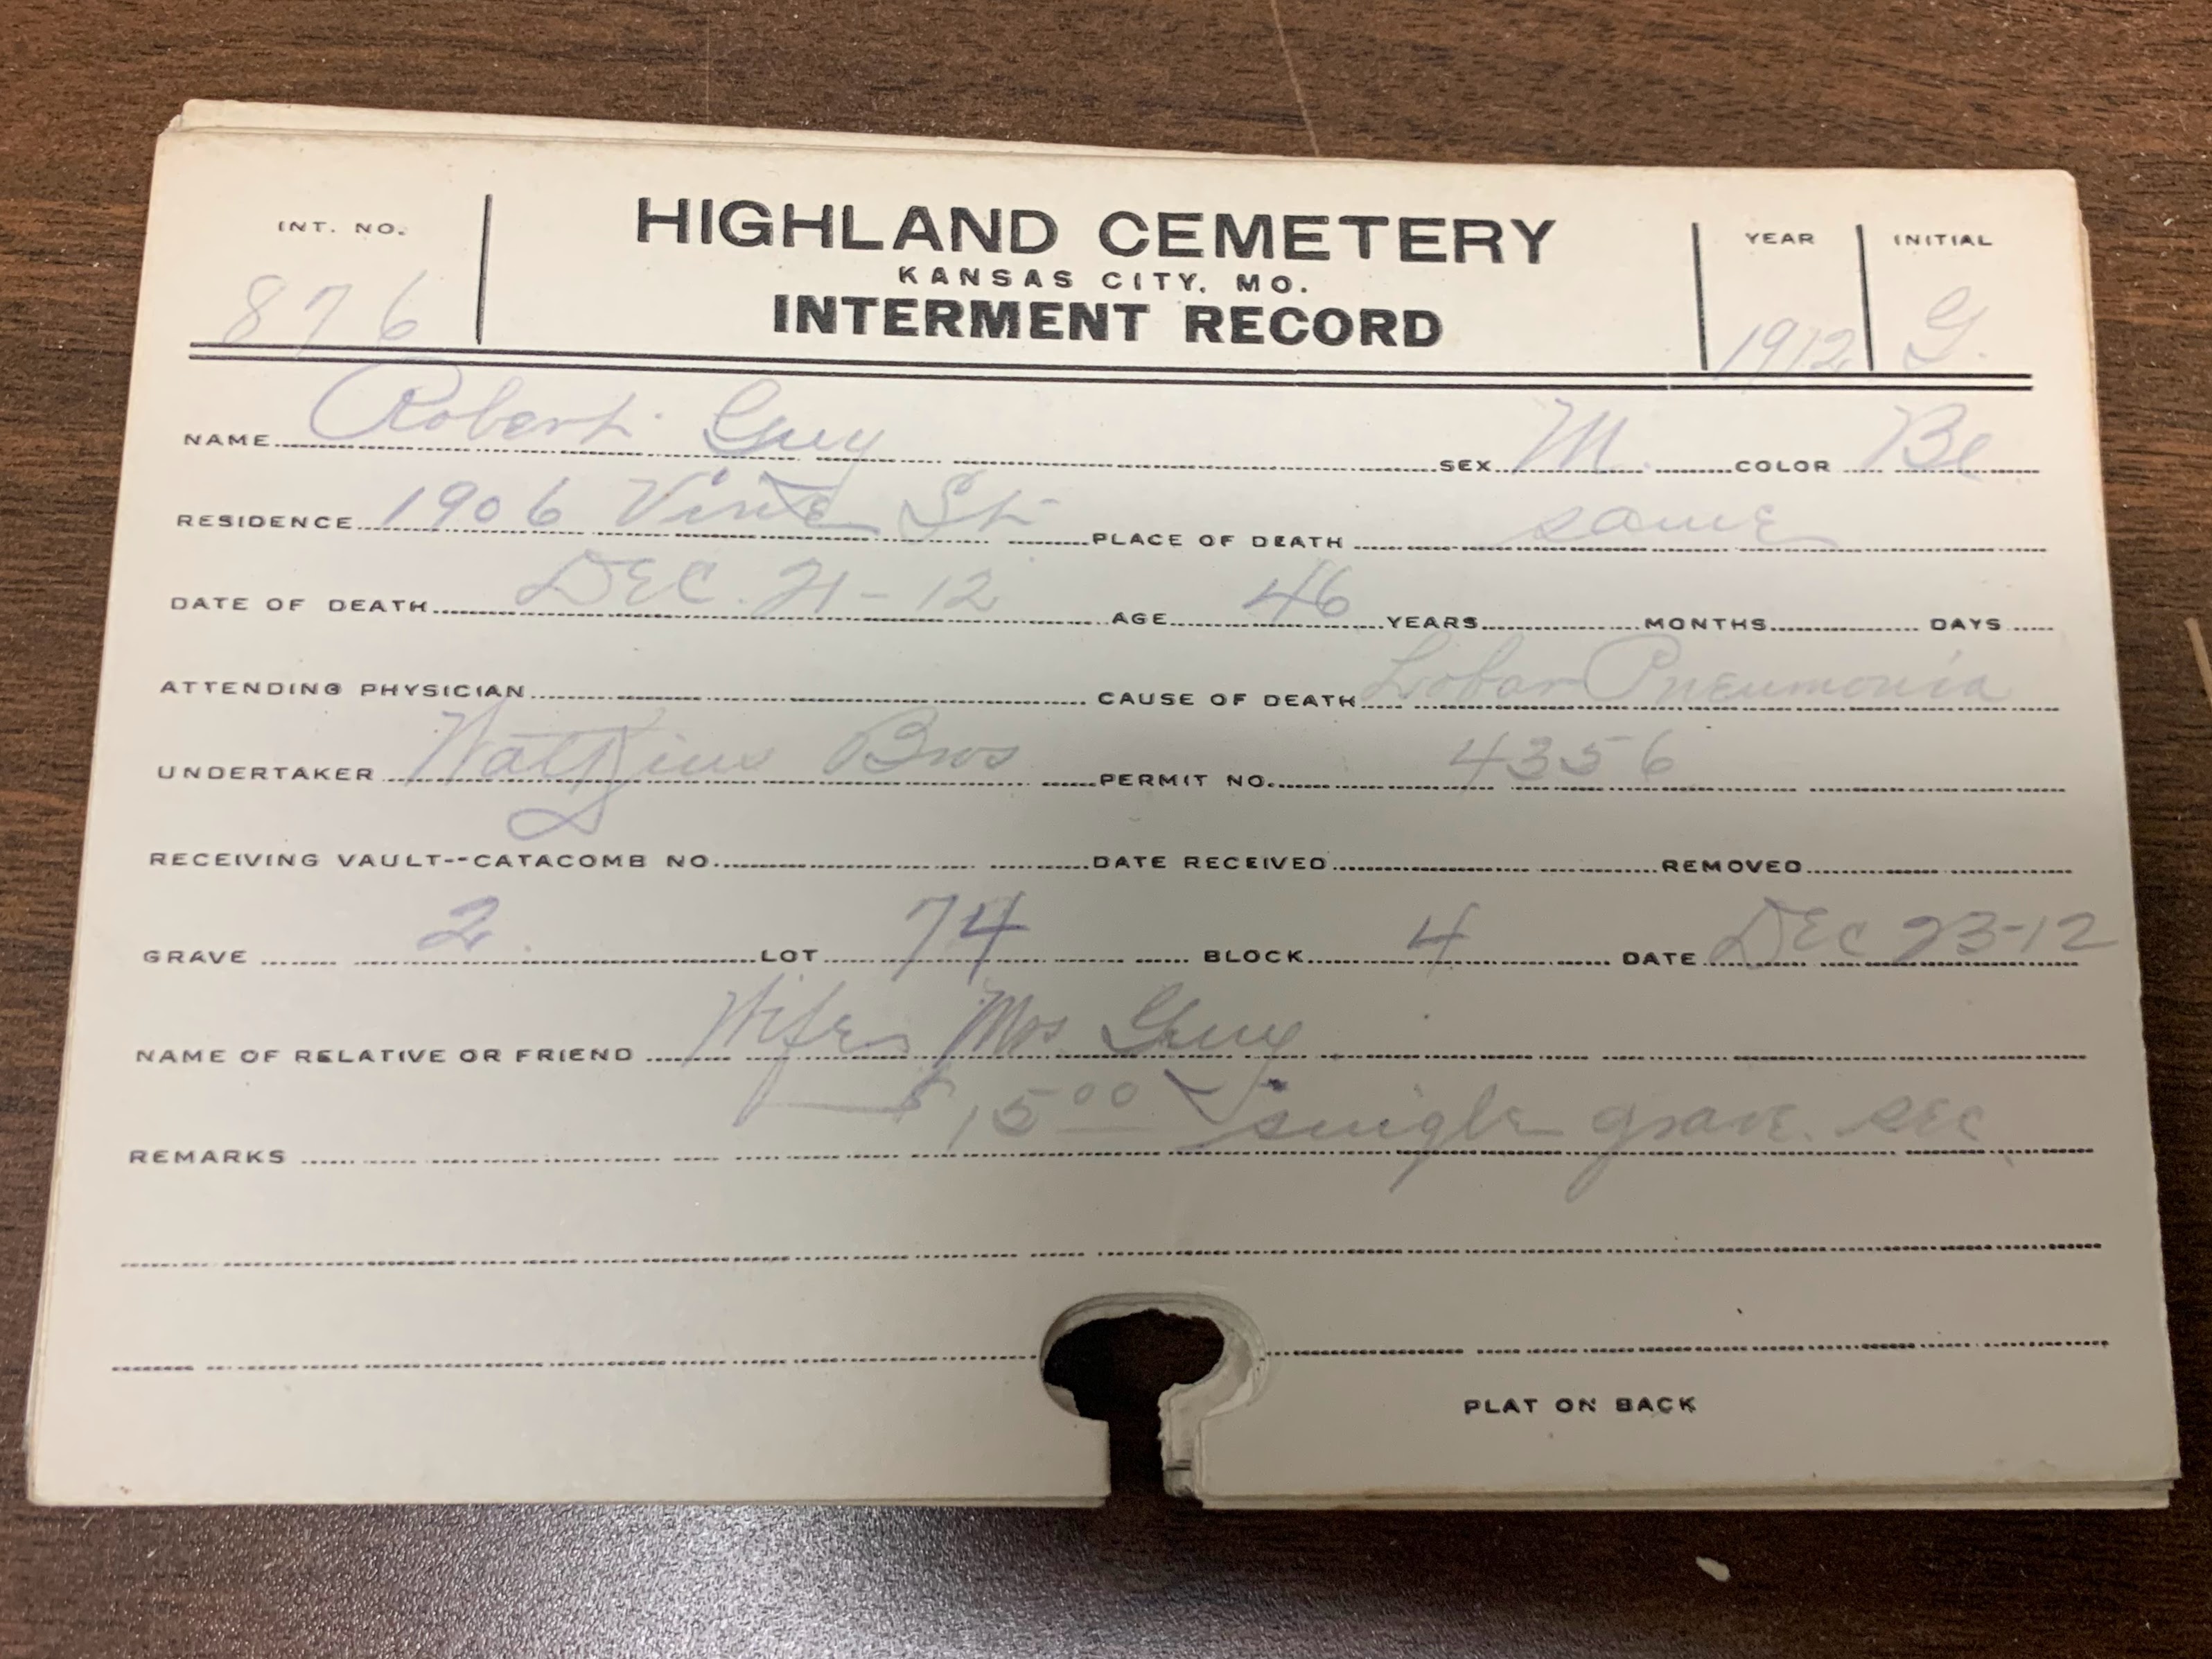 INT. NO. HIGHLAND CEMETERY YEAR INITIAL
KANSAS CITY, MO.
876 INTERMENT RECORD 1912 G.
NAME Robert Guy SEX M. COLOR Bl
RESIDENCE 1906 Vine St. PLACE OF DEATH same
DATE OF DEATH DEC. 21-12 AGE 46 YEARS MONTHS DAYS
ATTENDING PHYSICIAN CAUSE OF DEATH Lobar Pneumonia
UNDERTAKER Watkins Bros PERMIT NO. 4356
RECEIVING VAULT--CATACOMB NO. DATE RECEIVED REMOVED
GRAVE 2. LOT 74 BLOCK 4 DATE DEC 23-12
NAME OF RELATIVE OR FRIEND Wife Mrs Guy
REMARKS $15.00 single grave. SEC
PLAT ON BACK